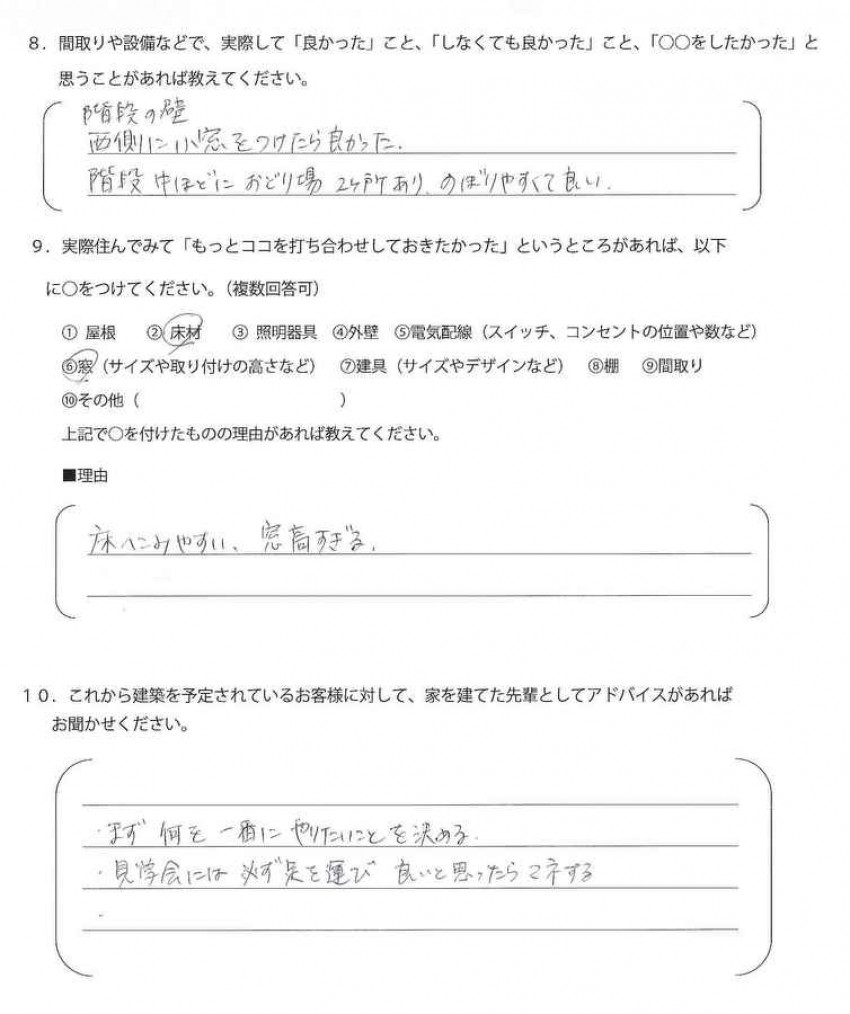 ８．間取りや設備などで、実際して「良かった」こと、「しなくても良かった」こと、「〇〇をしたかった」と
思うことがあれば教えてください。
階段の壁
西側に小窓をつけたら良かった.
階段 中ほどに おどり場 2ヶ所あり、のぼりやすくて良い.
９．実際住んでみて「もっとココを打ち合わせしておきたかった」というところがあれば、以下
に〇をつけてください。（複数回答可）
① 屋根 ② 床材 ③ 照明器具 ④外壁 ⑤電気配線（スイッチ、コンセントの位置や数など）
⑥窓（サイズや取り付けの高さなど） ⑦建具（サイズやデザインなど） ⑧棚 ⑨間取り
⑩その他（ ）
上記で〇を付けたものの理由があれば教えてください。
■理由
床へこみやすい、窓高すぎる.
１０．これから建築を予定されているお客様に対して、家を建てた先輩としてアドバイスがあれば
お聞かせください。
・まず 何を 一番に やりたいことを決める.
・見学会には 必ず足を運び 良いと思ったらマネする
・